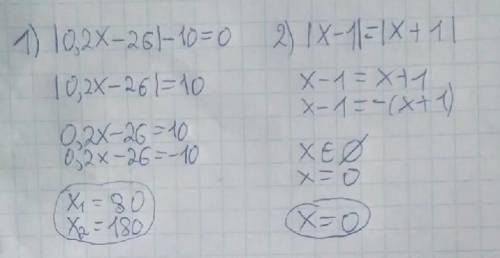 1) |0,2x-26|-10=0
|0,2x-26|=10
0,2x-26=10
0,2x-26=-10
x₁=80
x₂=180
2) |x-1|=|x+1|
x-1=x+1
x-1=-(x+1)
x∈∅
x=0
x=0